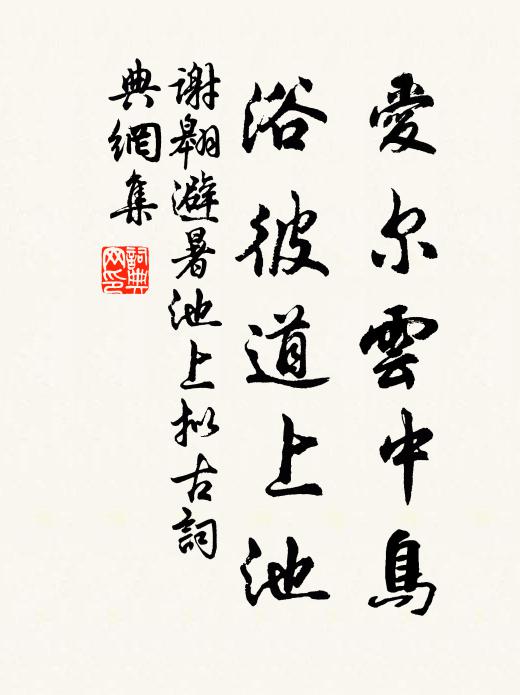 愛尔雲中鳥
浴彼道上池
謝翱避暑池上拟古詞
典網集
詞典網印